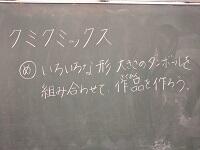 クミクミックス
め いろいろな形 大きさのダンボールを
組み合わせて、作品を作ろう。